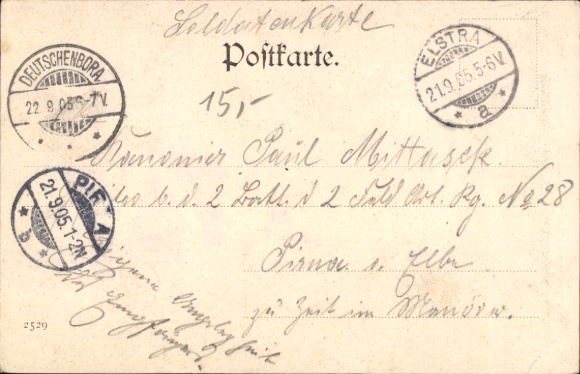 Soldatenkarte
Postkarte.
ELSTRA
21.9.05.5-6V.
* a *
DEUTSCHENBORA.
22.9.05 6-7V.
* * *
15,-
Kanonier Paul Mittasch
b. d. 2 Batt. d 2 Feld Art. Rg. No 28
PIRNA
21.9.05.1-2N.
* b *
Pirna a. Elbe
zu Zeit im Manöver.
Eigene Angelegenheit
des Empfängers
2529